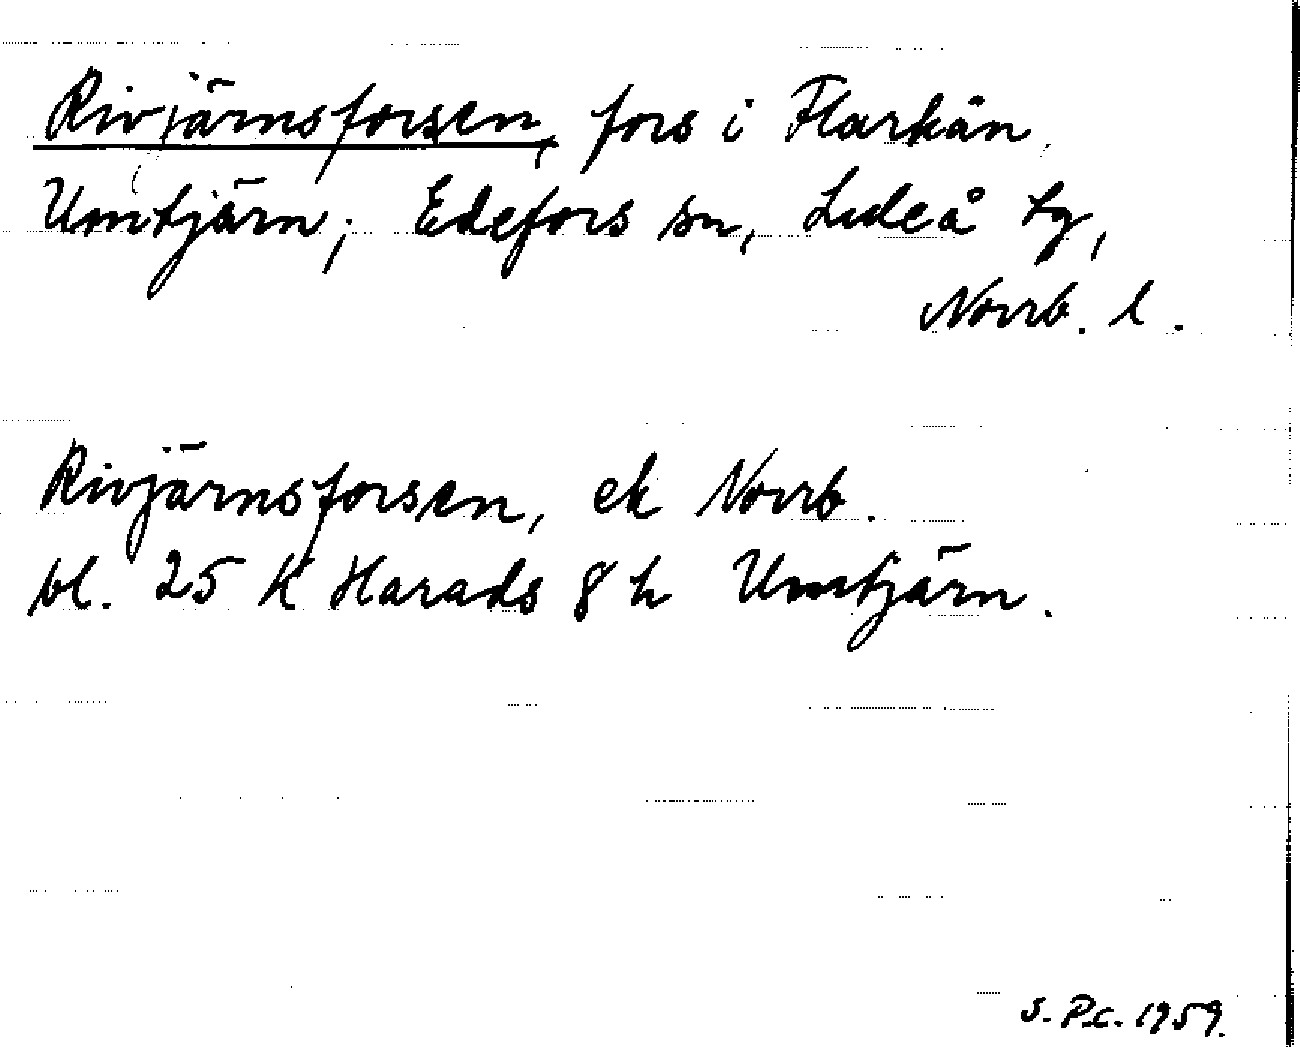 Rivjärnsforsen, fors i Flarkån,
Umtjärn; Edefors sn, Luleå tg,
Norrb. l.
Rivjärnsforsen, ek Norrb.
bl. 25 K Harads 8 h Umtjärn.
S. P.c. 1959.